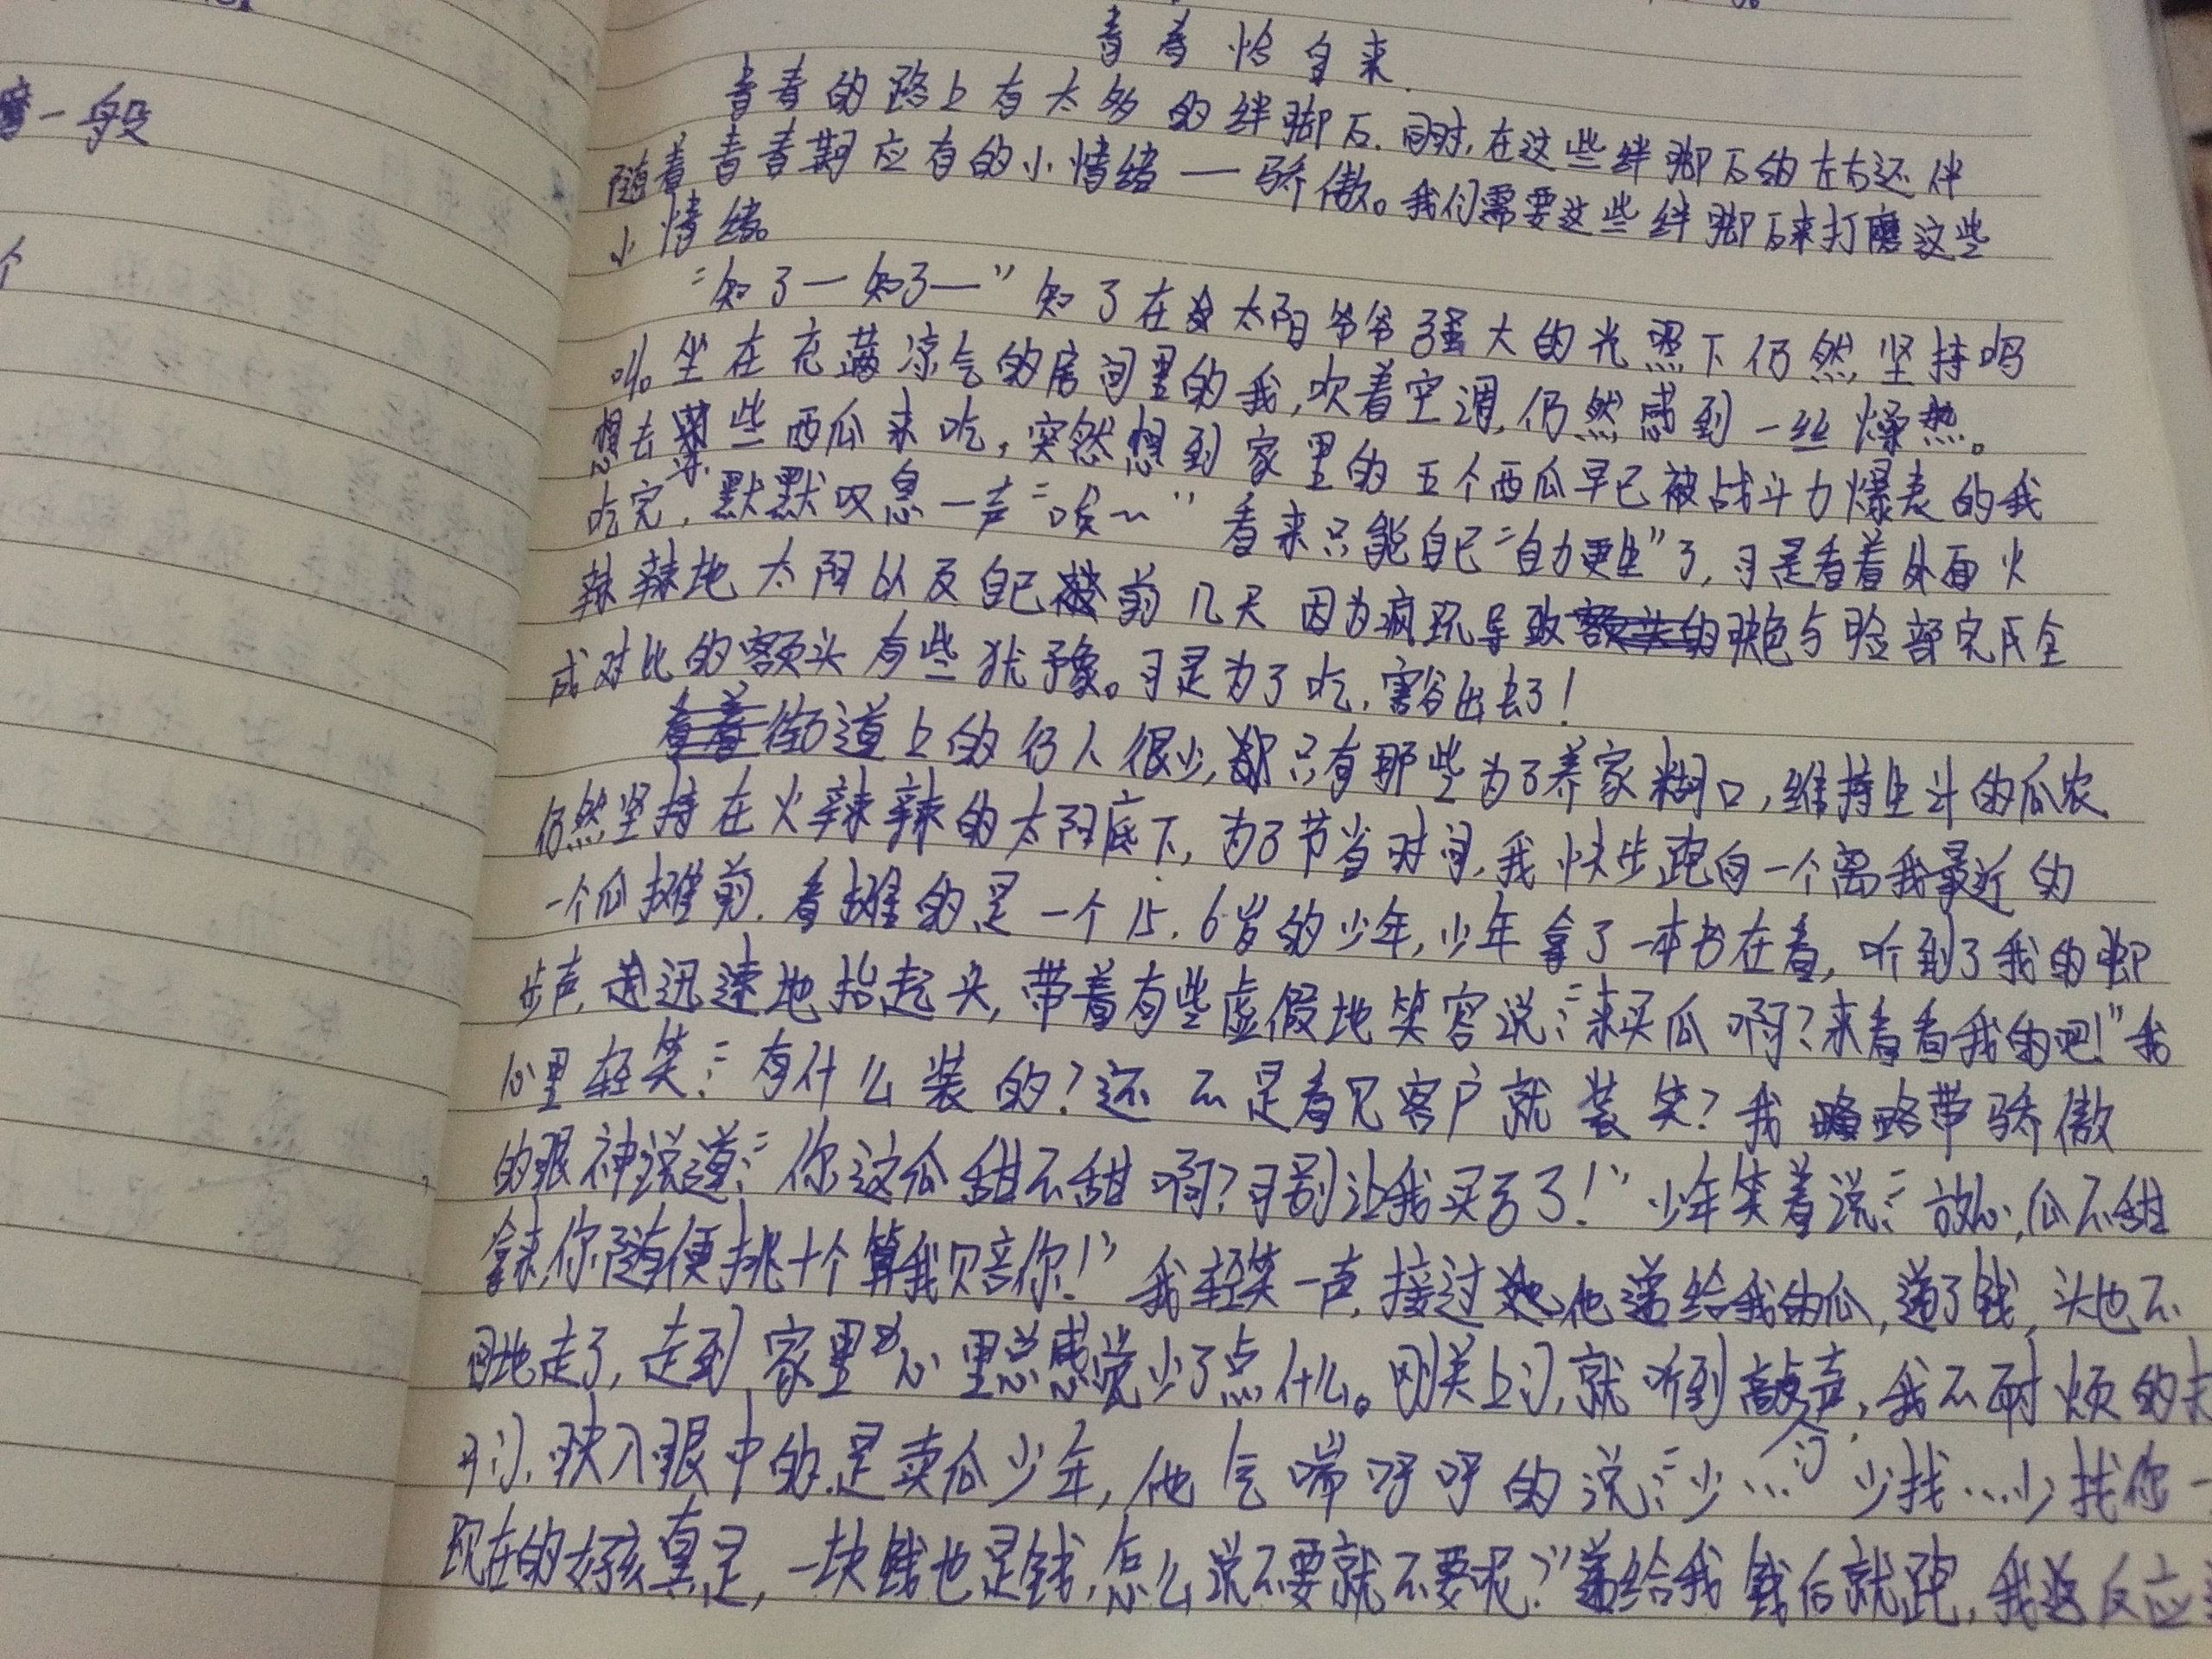 一般
个
青春恰自来
青春的路上有太多的绊脚石.同时,在这些绊脚石的左右还伴
随着青春期应有的小情绪一骄傲。我们需要这些绊脚石来打磨这些
小情绪。
“知了一知了一”知了在太阳爷爷强大的光照下仍然坚持鸣
叫。坐在充满凉气的房间里的我,吹着空调,仍然感到一丝燥热。
想去拿些西瓜来吃,突然想到家里的五个西瓜早已被战斗力爆表的我
吃完,默默叹息一声“唉~”看来只能自己“自力更生”了,可是看着外面火
辣辣地太阳以及自己前几天因为疯玩导致肤色与脸部完全
成对比的额头有些犹豫。可是为了吃,豁出去了!
街道上的行人很少,只有那些为了养家糊口,维持生计的瓜农
仍然坚持在火辣辣的太阳底下,为了节省时间,我快步跑向一个离我最近的
一个瓜摊前.看摊的是一个15.6岁的少年,少年拿了一本书在看,听到了我的脚
步声,迅速地抬起头,带着有些虚假地笑容说:“来买瓜啊?来看看我的吧!”我
心里轻笑:“有什么装的?还不是看见客户就装笑?我略带骄傲
的眼神说道:“你这瓜甜不甜啊?可别让我买亏了!”少年笑着说:“放心,瓜不甜
拿来,你随便挑十个算我赔你!”我轻笑一声,接过他递给我的瓜,递了钱,头也不
回地走了,走到家里心里总感觉少了点什么。刚关上门,就听到敲门声,我不耐烦的
开门,映入眼中的是卖瓜少年,他气喘呼呼的说:“少…少找…少找你一
现在的女孩真是,一块钱也是钱,怎么说不要就不要呢?”递给我钱后就跑,我还反应